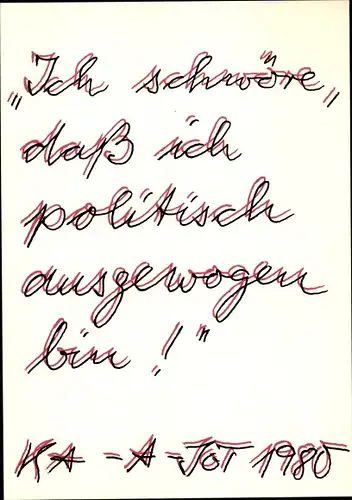 „Ich schwöre„
daß ich
politisch
ausgewogen
bin!"
KA-A-JOT 1980